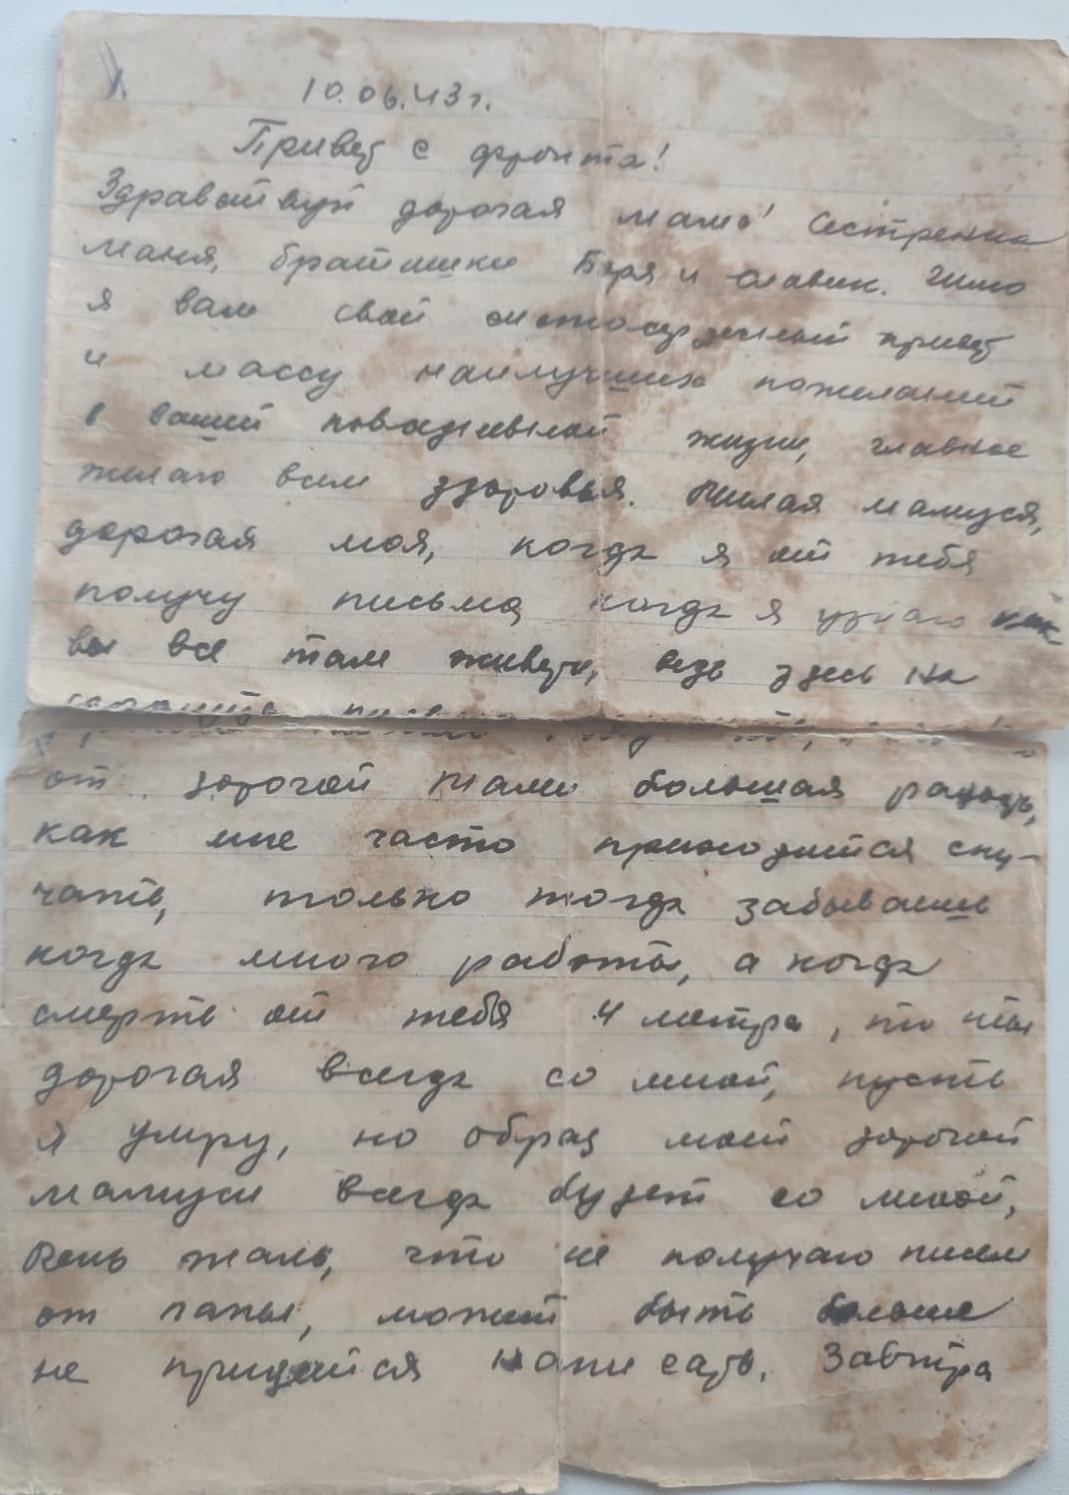 10.06.43 г.
Привет с фронта!
Здравствуй дорогая мама! Сестренка
Маня, братишки Боря и Славик. Шлю
я вам свой чистосердечный привет
и массу наилучших пожеланий
в вашей повседневной жизни, главное
желаю всем здоровья. Милая мамуся,
дорогая моя, когда я от тебя
получу письма, когда я узнаю как
вы все там живете, ведь здесь на
письмо
от дорогой мамы большая радость,
как мне часто приходится ску-
чать, только тогда забываешь
когда много работы, а когда
смерть от тебя 4 метра, то ты
дорогая всегда со мной, пусть
я умру, но образ моей дорогой
мамуси всегда будет со мной,
Очень жаль, что не получаю писем
от папы, может быть больше
не придется написать. Завтра